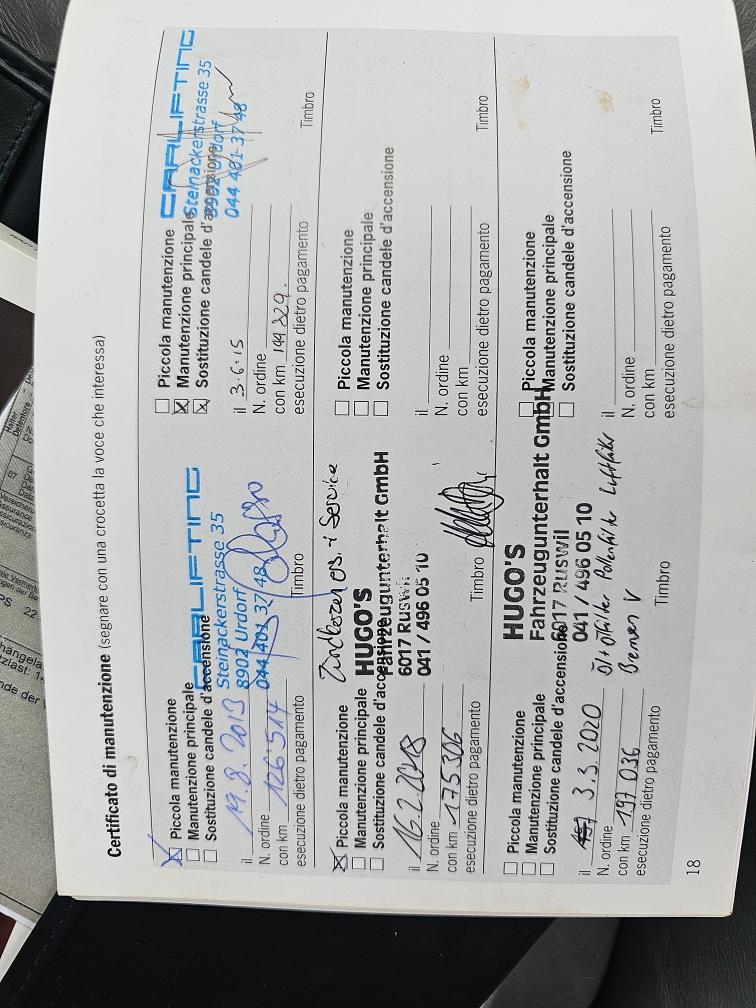 Certificato di manutenzione (segnare con una crocetta la voce che interessa)
Piccola manutenzione
Manutenzione principale
Sostituzione candele d'accensione
CARLIFTING
Steinackerstrasse 35
8902 Urdorf
044 401 37 48
il 19.8.2013
N. ordine
con km 126'514
esecuzione dietro pagamento
Timbro
Piccola manutenzione
Manutenzione principale
Sostituzione candele d'accensione
CARLIFTING
Steinackerstrasse 35
8902 Urdorf
044 401 37 48
il 3.6.15
N. ordine
con km 144 329.
esecuzione dietro pagamento
Timbro
Service
Piccola manutenzione
Manutenzione principale
Sostituzione candele d'accensione
HUGO'S
Fahrzeugunterhalt GmbH
6017 Ruswil
041 / 496 05 10
il 16.2.2018
N. ordine
con km 175306
esecuzione dietro pagamento
Timbro
Piccola manutenzione
Manutenzione principale
Sostituzione candele d'accensione
il
N. ordine
con km
esecuzione dietro pagamento
Timbro
Piccola manutenzione
Manutenzione principale
Sostituzione candele d'accensione
HUGO'S
Fahrzeugunterhalt GmbH
6017 Ruswil
041 / 496 05 10
il 3.3.2020
Öl + Ölfilter Pollenfilter Luftfilter
N. ordine
Bremsen V
con km 197 036
esecuzione dietro pagamento
Timbro
Piccola manutenzione
Manutenzione principale
Sostituzione candele d'accensione
il
N. ordine
con km
esecuzione dietro pagamento
Timbro
18